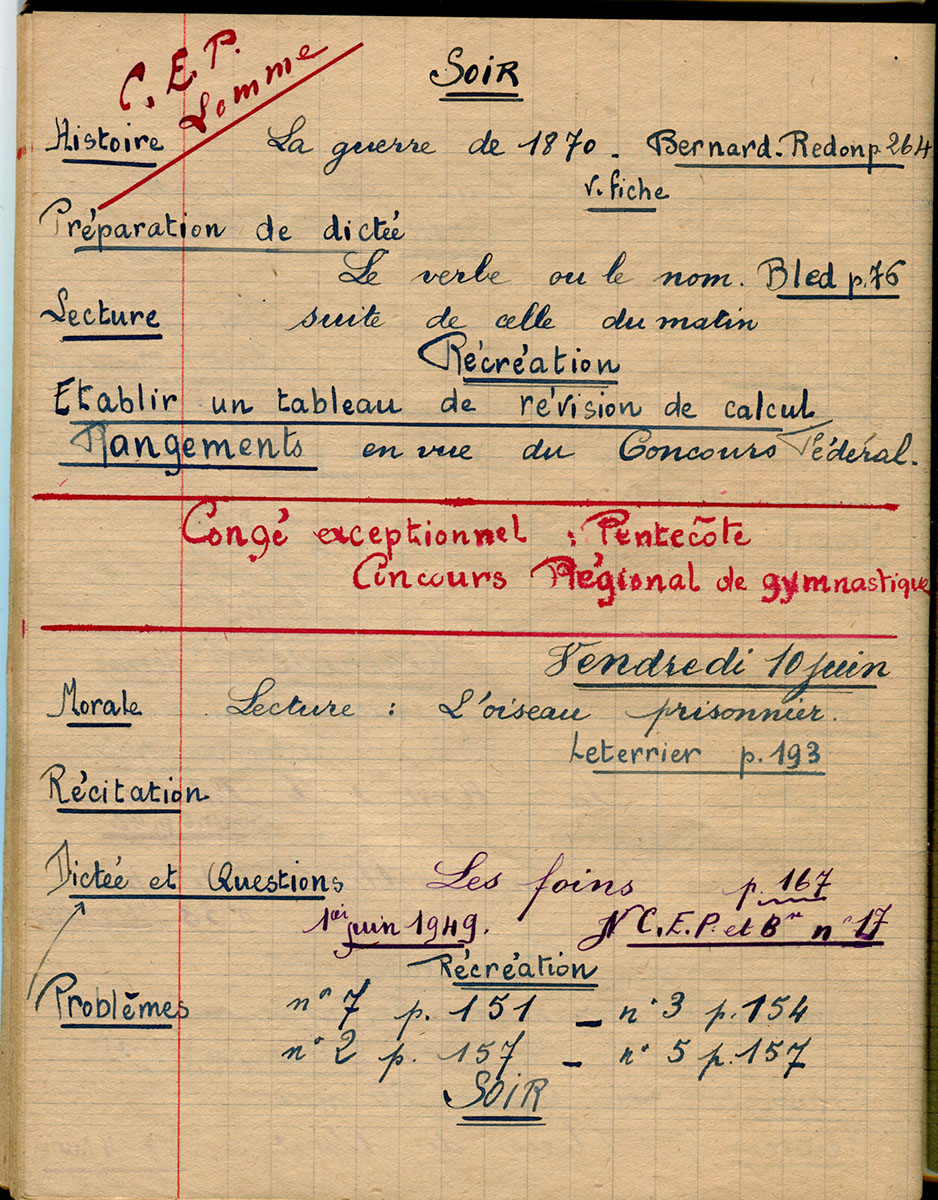 C.E.P.
Somme
SOIR
Histoire La guerre de 1870. Bernard. Redon p. 264
v. fiche
Préparation de dictée
Le verbe ou le nom. Bled p. 76
Lecture suite de celle du matin
Récréation
Etablir un tableau de révision de calcul
Rangements en vue du Concours Fédéral.
Congé exceptionnel : Pentecôte
Concours Régional de gymnastique
Vendredi 10 juin
Morale Lecture : L'oiseau prisonnier.
Leterrier p. 193
Récitation
Dictée et Questions Les foins p. 167
1er juin 1949. N C.E.P. et Bᵗˢ n° 17
Récréation
Problèmes n° 7 p. 151 – n° 3 p. 154
n° 2 p. 157 – n° 5 p. 157
SOIR